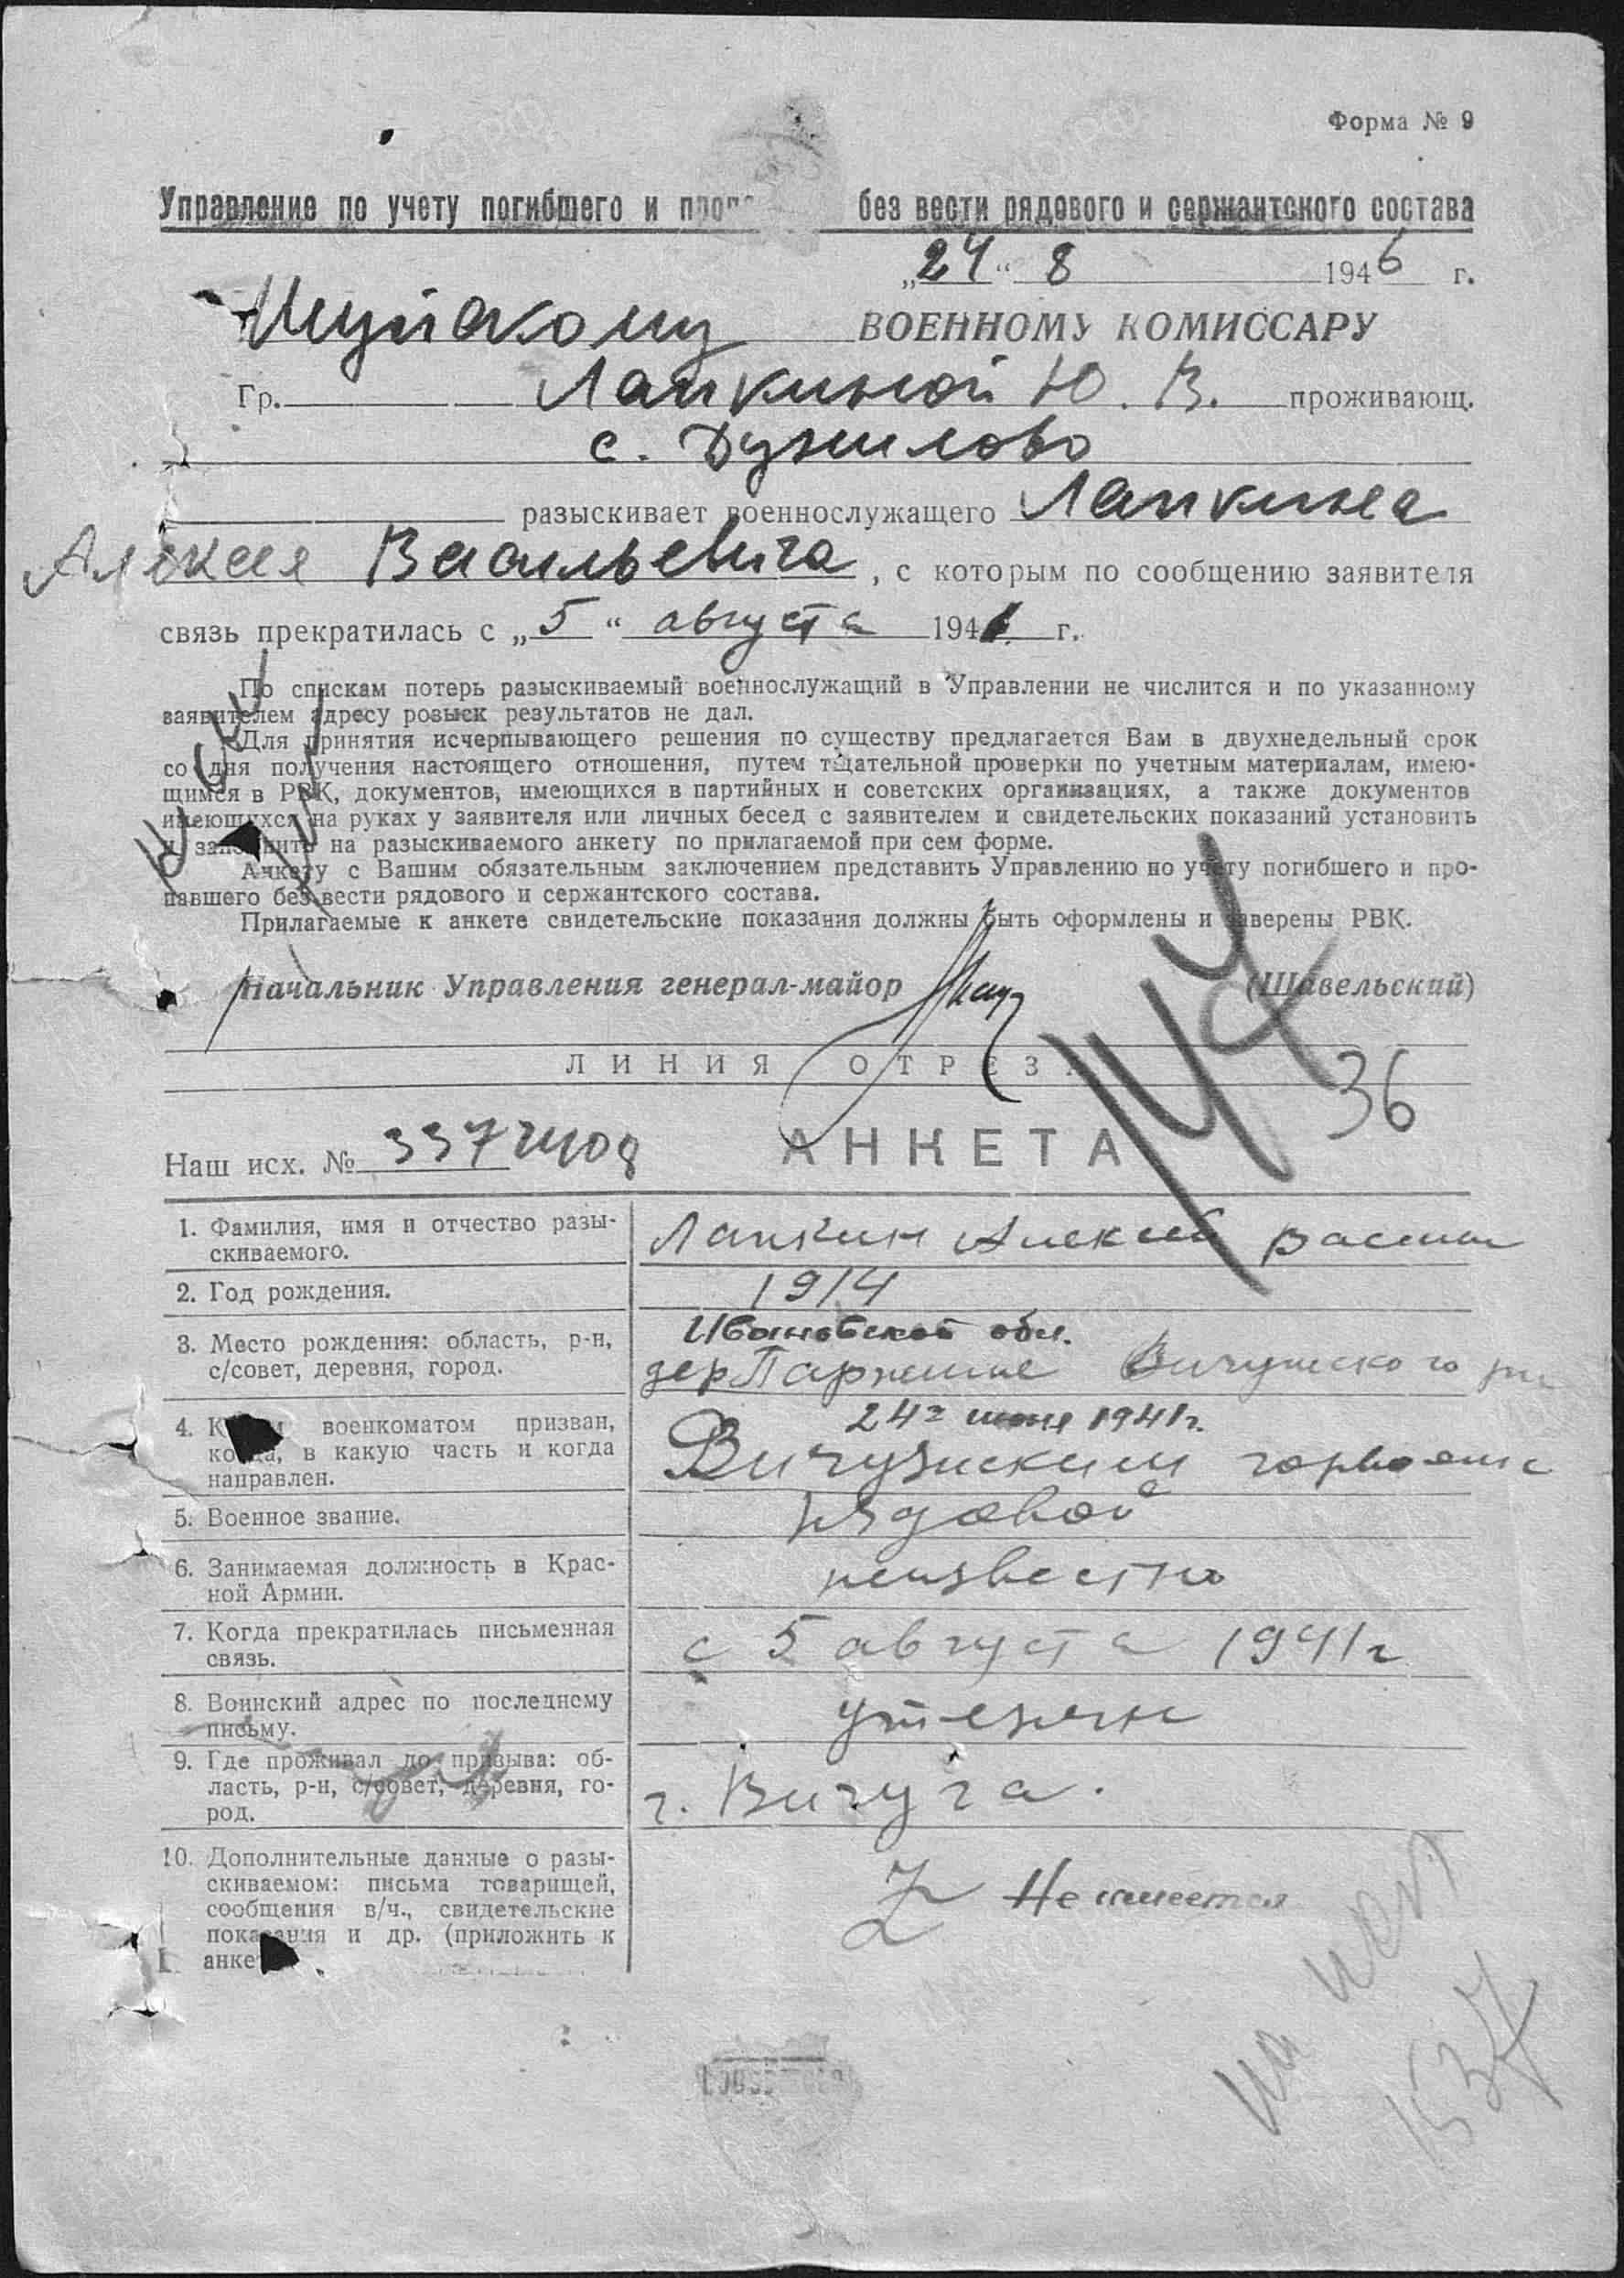 Форма № 9
Управление по учету погибшего и проп без вести рядового и сержантского состава
„24“ 8 1946 г.
Шуйскому ВОЕННОМУ КОМИССАРУ
Гр. Лапкиной Ю. В. проживающ.
с. Дунилово
разыскивает военнослужащего Лапкина
Алексея Васильевича, с которым по сообщению заявителя
связь прекратилась с „5“ августа 1941 г.
По спискам потерь разыскиваемый военнослужащий в Управлении не числится и по указанному
заявителем адресу розыск результатов не дал.
Для принятия исчерпывающего решения по существу предлагается Вам в двухнедельный срок
со дня получения настоящего отношения, путем тщательной проверки по учетным материалам, имею-
щимся в РВК, документов, имеющихся в партийных и советских организациях, а также документов
имеющихся на руках у заявителя или личных бесед с заявителем и свидетельских показаний установить
и заполнить на разыскиваемого анкету по прилагаемой при сем форме.
Анкету с Вашим обязательным заключением представить Управлению по учету погибшего и про-
павшего без вести рядового и сержантского состава.
Прилагаемые к анкете свидетельские показания должны быть оформлены и заверены РВК.
Начальник Управления генерал-майор (Шавельский)
ЛИНИЯ ОТРЕЗА
144
36
Наш исх. № АНКЕТА
1. Фамилия, имя и отчество разы-
скиваемого.
Лапкин Алексей Васил
2. Год рождения.
1914
3. Место рождения: область, р-н,
с/совет, деревня, город.
Ивановской обл.
дер Вичугского
4. Каким военкоматом призван,
когда, в какую часть и когда
направлен.
24го июня 1941г.
Вичугским
5. Военное звание.
рядовой
6. Занимаемая должность в Крас-
ной Армии.
неизвестно
7. Когда прекратилась письменная
связь.
с 5 августа 1941г
8. Воинский адрес по последнему
письму.
утерян
9. Где проживал до призыва: об-
ласть, р-н, с/совет, деревня, го-
род.
г. Вичуга.
10. Дополнительные данные о разы-
скиваемом: письма товарищей,
сообщения в/ч., свидетельские
показания и др. (приложить к
анке
Не имеется